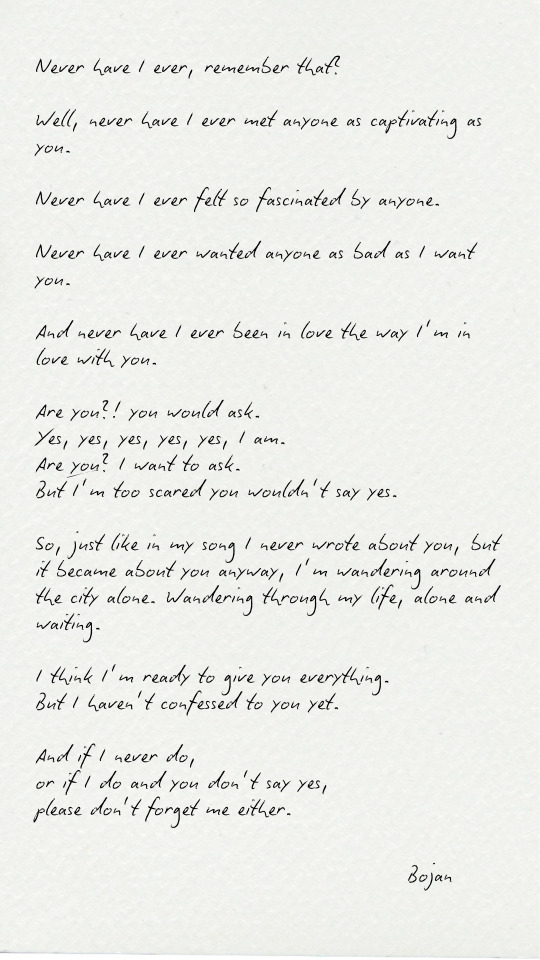 Never have I ever, remember that?
Well, never have I ever met anyone as captivating as
you.
Never have I ever felt so fascinated by anyone.
Never have I ever wanted anyone as bad as I want
you.
And never have I ever been in love the way I'm in
love with you.
Are you?! you would ask.
Yes, yes, yes, yes, yes, I am.
Are you? I want to ask.
But I'm too scared you wouldn't say yes.
So, just like in my song I never wrote about you, but
it became about you anyway, I'm wandering around
the city alone. Wandering through my life, alone and
waiting.
I think I'm ready to give you everything.
But I haven't confessed to you yet.
And if I never do,
or if I do and you don't say yes,
please don't forget me either.
Bojan